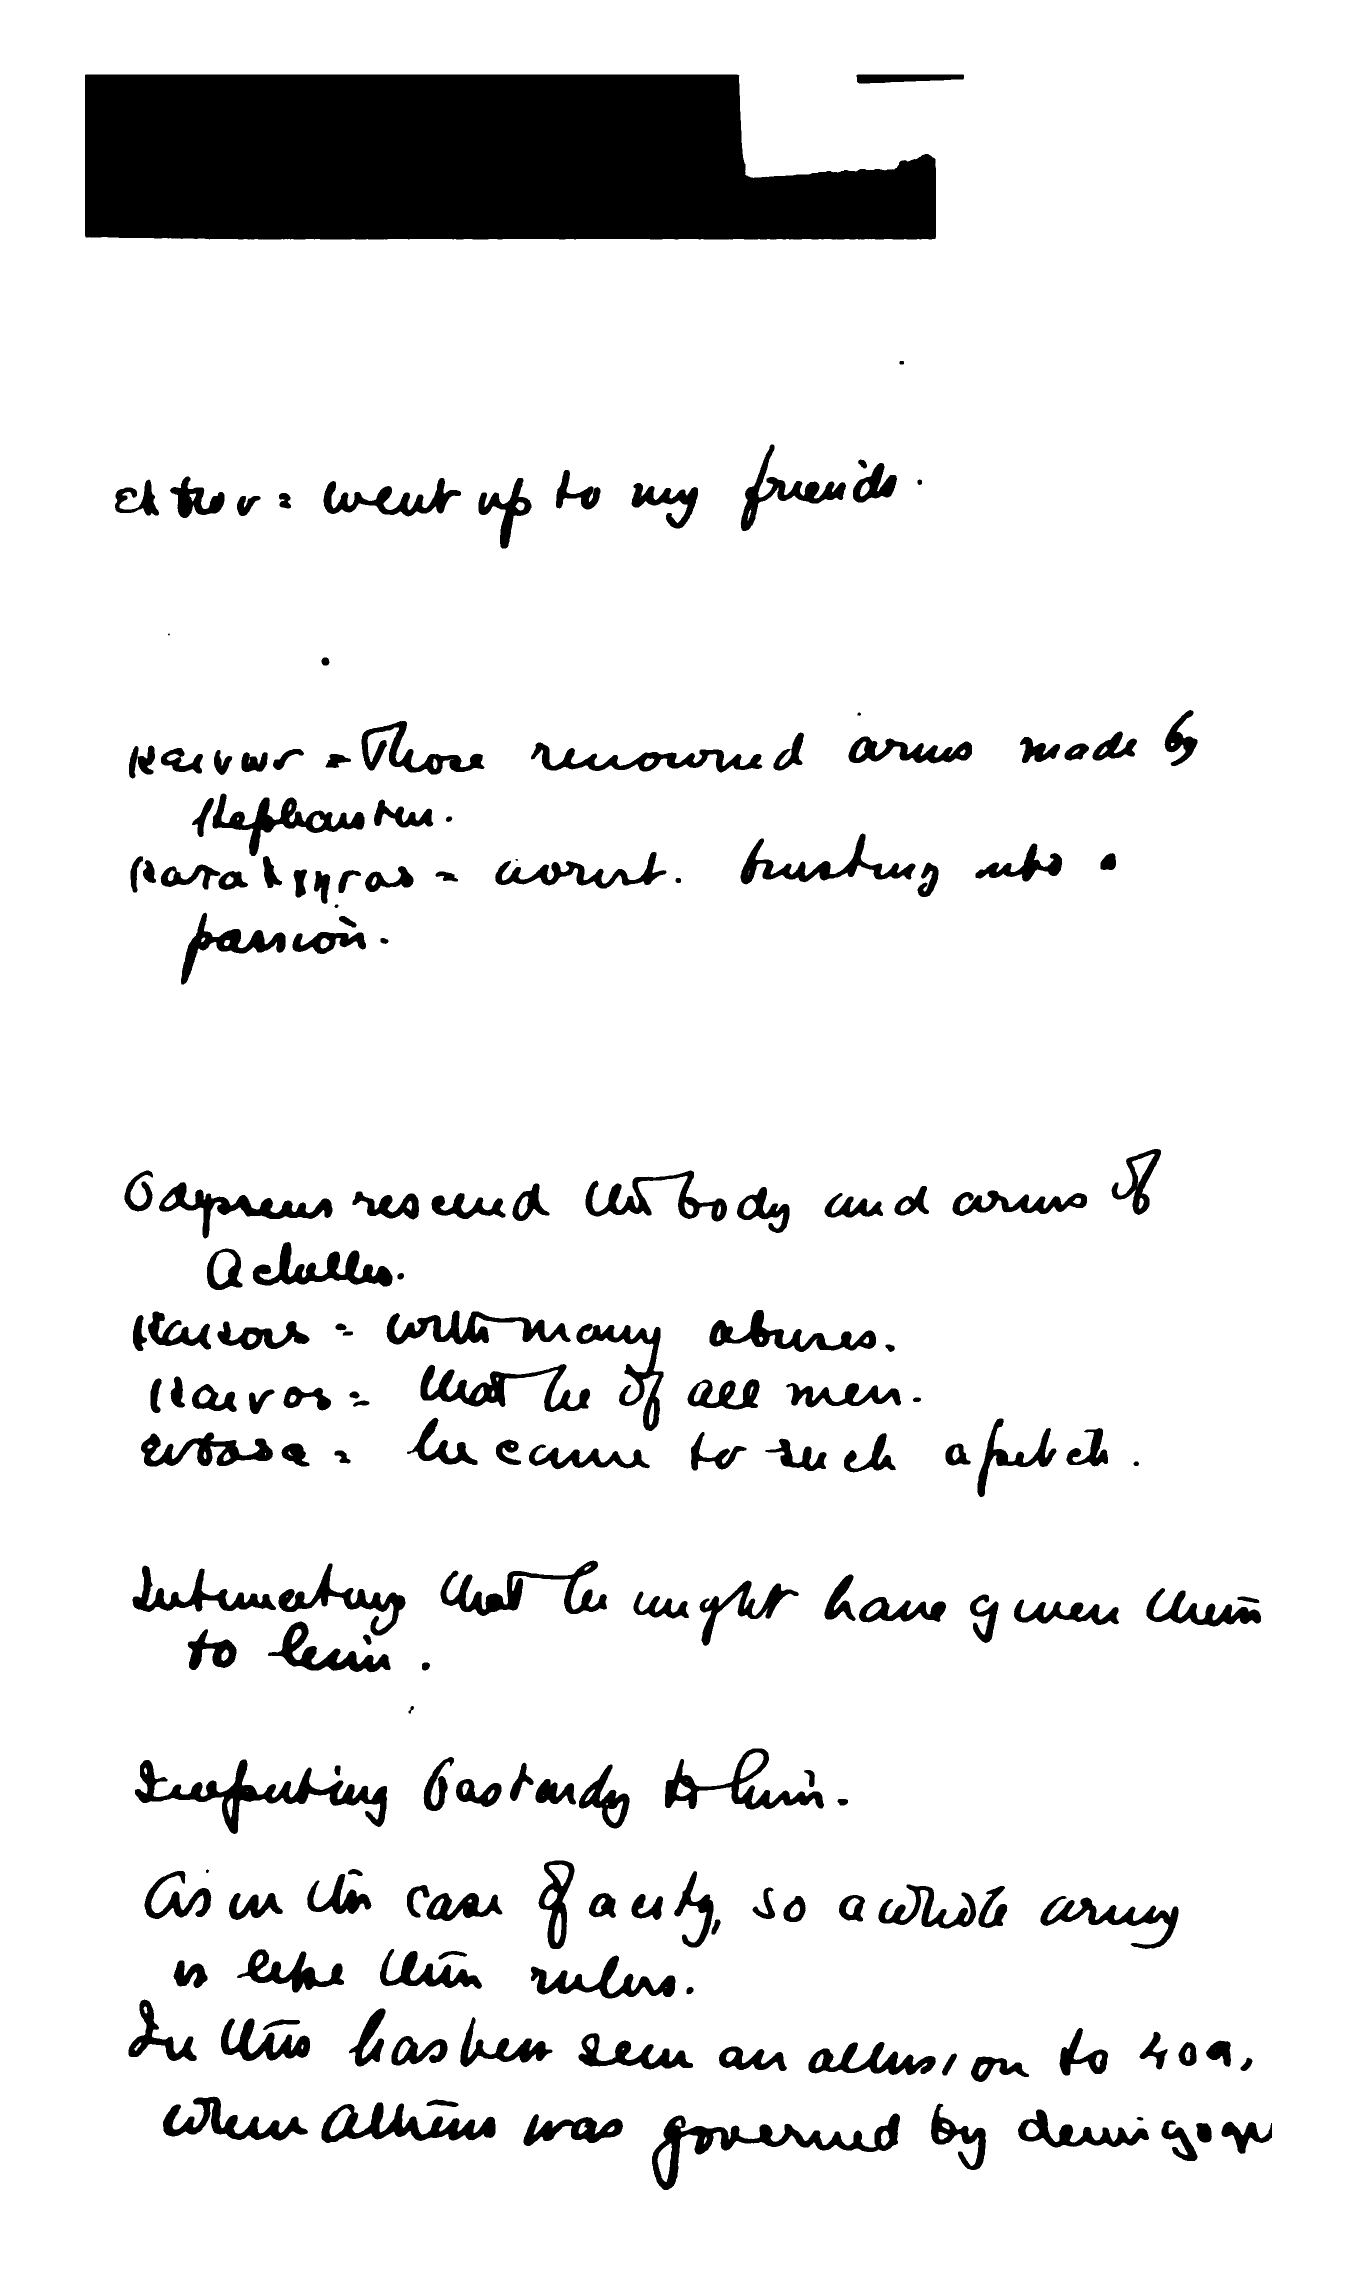 = went up to my friends.
κεινων = Those renowned arms made by
Hephaustus.
= aorist. bursting into a
passion.
Odysseus rescued the body and arms of
Achilles.
= with many abuses.
κεινος = that he of all men.
= he came to such a pitch.
Intimating that he might have given them
to him.
Imputing bastardy to him.
As in the case of a city, so a whole army
is like their rulers.
In this has been seen an allusion to 409,
when Athens was governed by